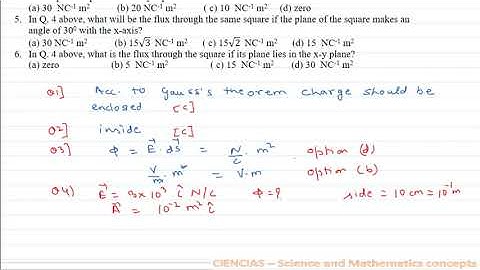 (a) 30 NC⁻¹ m² (b) 20 NC⁻¹ m² ( c) 10 NC⁻¹ m² (d) zero
5. In Q. 4 above, what will be the flux through the same square if the plane of the square makes an
angle of 30⁰ with the x-axis?
(a) 30 NC⁻¹ m² (b) 15√3 NC⁻¹ m² ( c) 15√2 NC⁻¹ m² (d) 15 NC⁻¹ m²
6. In Q. 4 above, what is the flux through the square if its plane lies in the x-y plane?
(a) zero (b) 5 NC⁻¹ m² ( c) 15 NC⁻¹ m² (d) 30 NC⁻¹ m²
Q1] Acc. to Gauss's theorem charge should be
enclosed [c]
Q2] inside [c]
Q3] Φ = E⃗ . ds⃗ = N/C . m² option (d)
V/m . m² = V.m option (b)
Q4) E⃗ = 3×10³ î N/C Φ = ? side = 10 cm = 10⁻¹ m
A⃗ = 10⁻² m² î
CIENCIAS – Science and Mathematics concepts